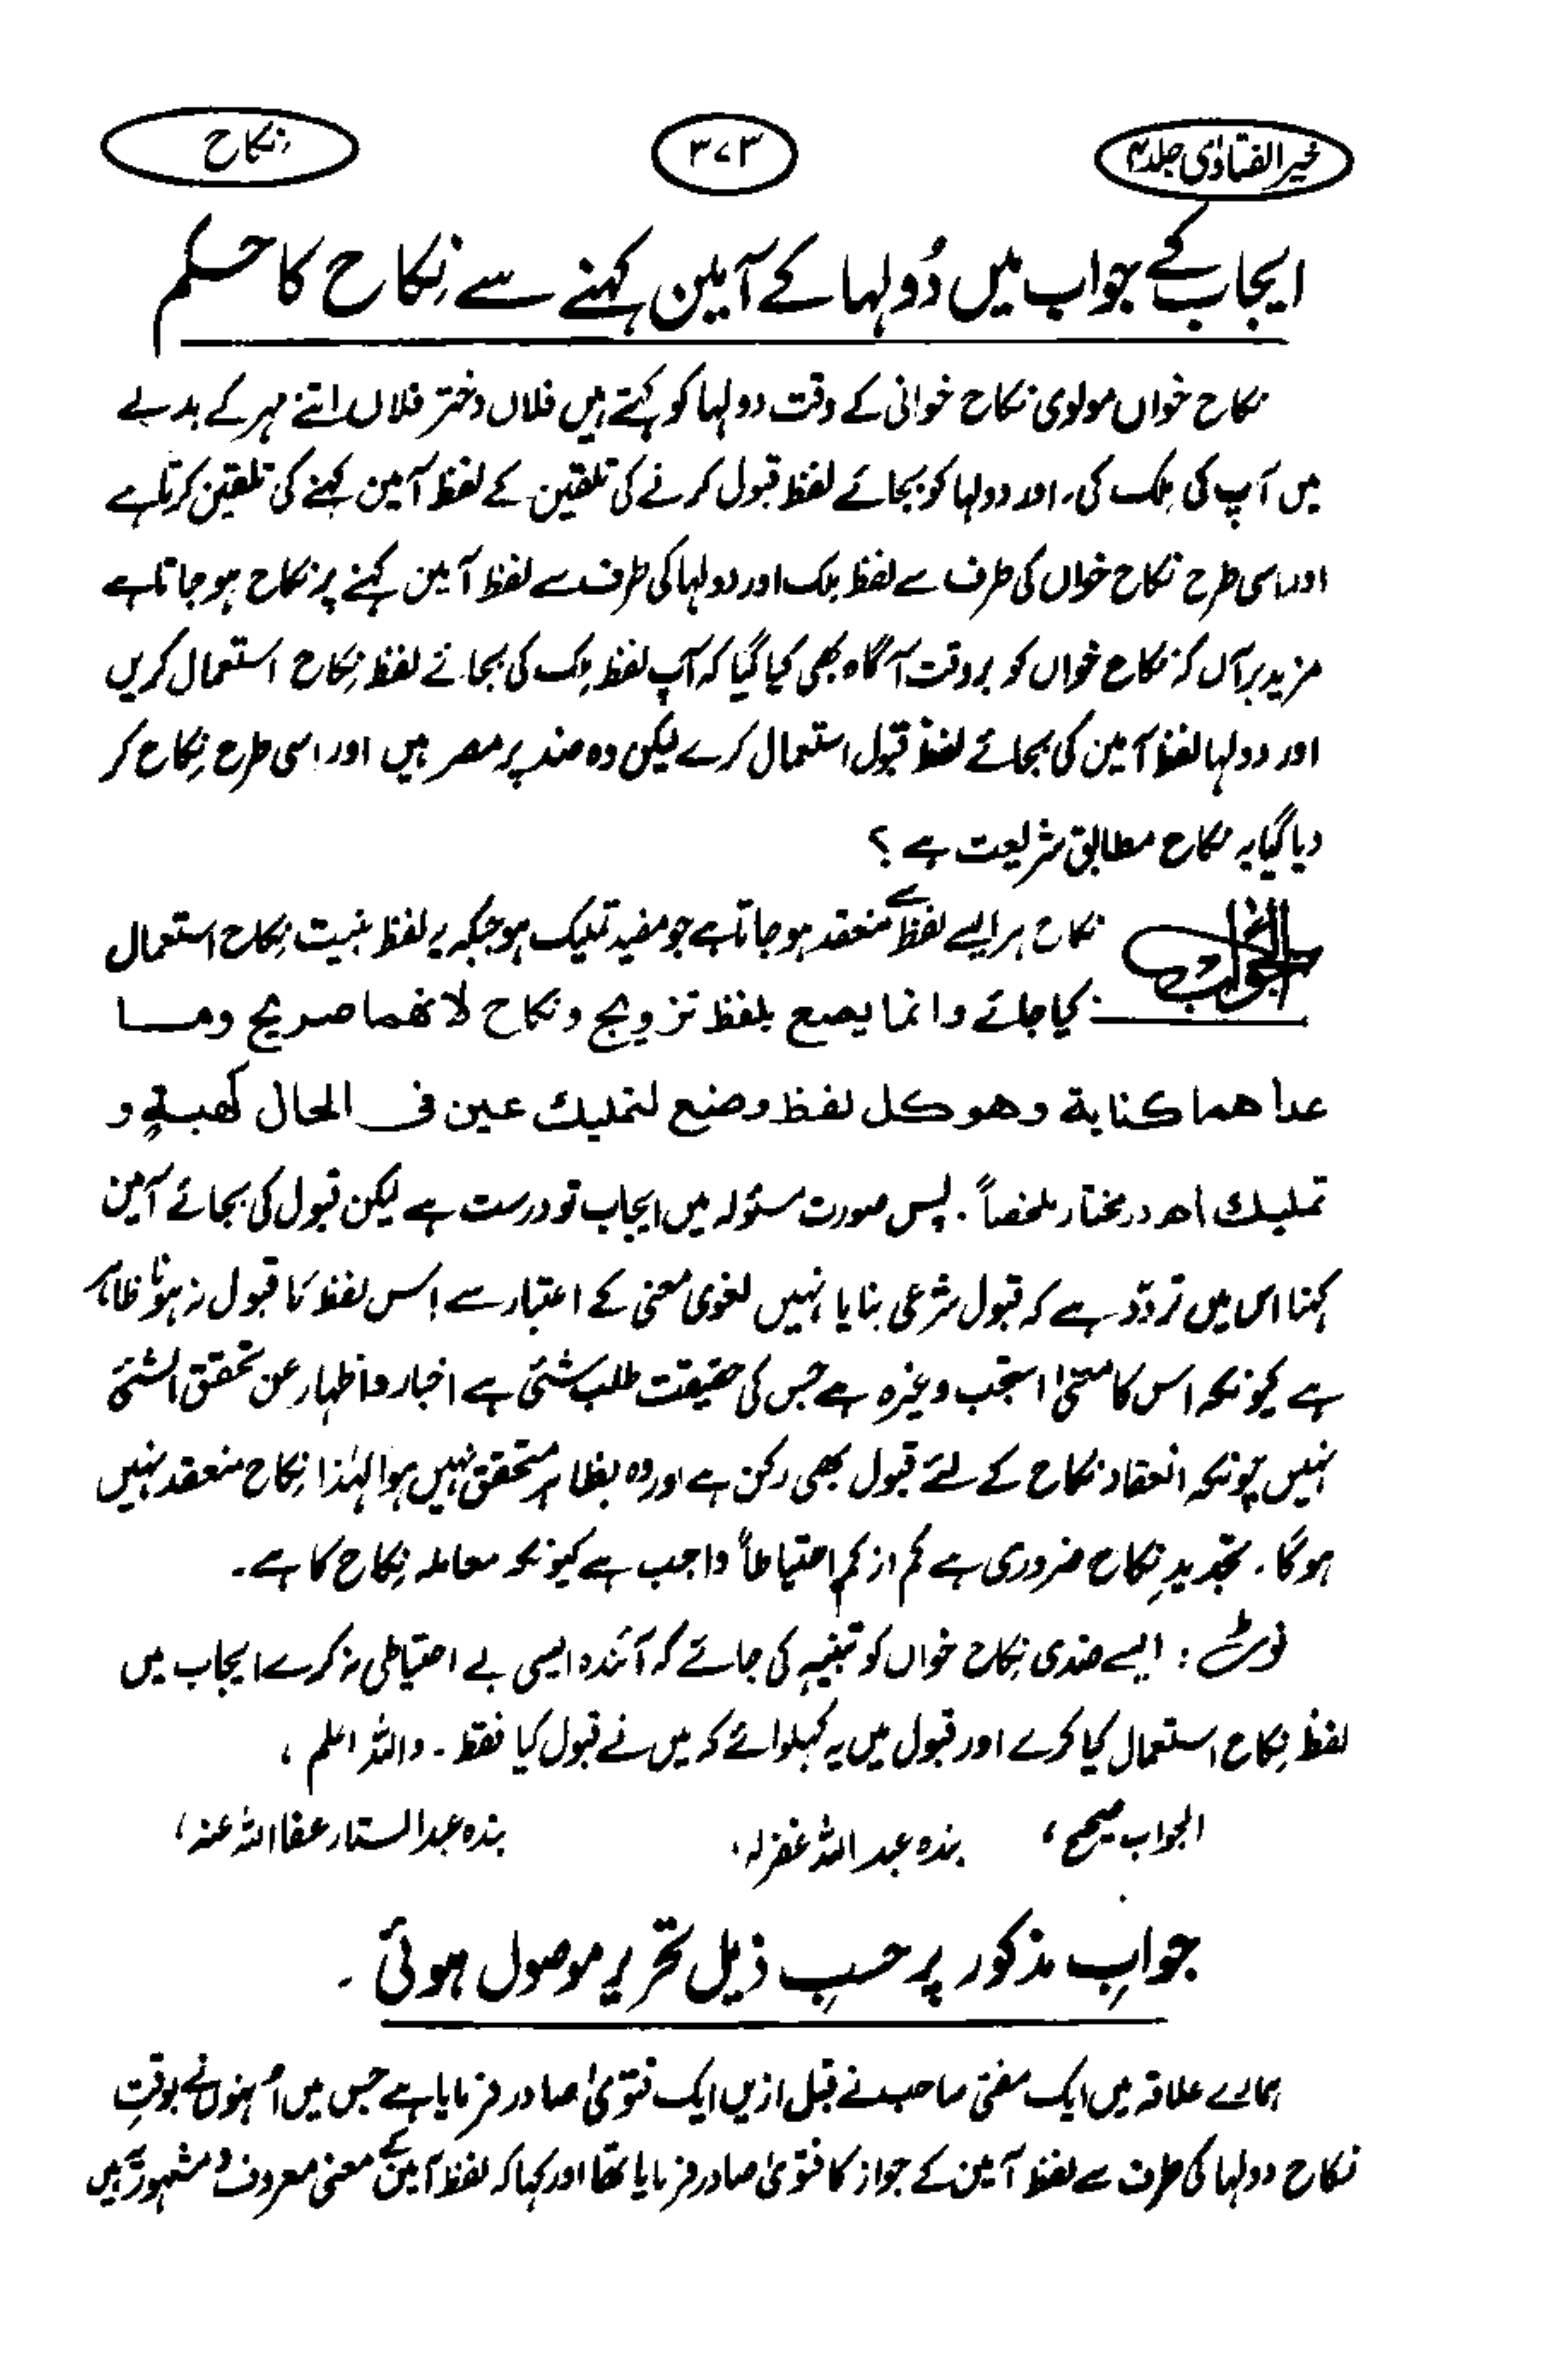 خیر الفتاوٰی جلد ۴
۳۷۳
نکاح
ایجاب کے جواب میں دُولہا کے آمین کہنے سے نِکاح کا حکم
نکاح خواں مولوی نکاح خوانی کے وقت دولہا کو کہتے ہیں فلاں دختر فلاں اتنے مہر کے بدلے
میں آپ کی مِلک کی۔ اور دولہا کو بجائے لفظ قبول کرنے کی تلقین کے لفظ آمین کہنے کی تلقین کرتا ہے
اور اسی طرح نکاح خواں کی طرف سے لفظ مِلک اور دولہا کی طرف سے لفظ آمین کہنے پر نکاح ہو جاتا ہے
مزید برآں کہ نکاح خواں کو بروقت آگاہ بھی کیا گیا کہ آپ لفظ مِلک کی بجائے لفظ نِکاح استعمال کریں
اور دولہا لفظ آمین کی بجائے لفظ قبول استعمال کرے لیکن وہ ضد پر مصر ہیں اور اسی طرح نِکاح کر
دیا گیا یہ نکاح مطابق شریعت ہے ؟
الجواب نکاح ہر ایسے لفظ سے منعقد ہو جاتا ہے جو مفید تملیک ہو جبکہ یہ لفظ بنیت نِکاح استعمال
کیا جائے وانما يصح بلفظ تزويج ونكاح لانهما صريح وما
عداهما كناية وهو كل لفظ وضع لتمليك عين فى الحال كهبةٍ و
تمليك اھ درمختار ملخصاً۔ پس صورت مسئولہ میں ایجاب تو درست ہے لیکن قبول کی بجائے آمین
کہنا اس میں تردّد ہے کہ قبول شرعی بنا یا نہیں لغوی معنی کے اعتبار سے اِس لفظ کا قبول نہ ہونا ظاہر
ہے کیونکہ اس کا معنیٰ استجب وغیرہ ہے جس کی حقیقت طلب شئی ہے اخبار و اظہار عن تحقق الشئ
نہیں چونکہ انعقاد نکاح کے لئے قبول بھی رکن ہے اور وہ بظاہر متحقق نہیں ہوا لہٰذا نِکاح منعقد نہیں
ہوگا۔ تجدیدِ نِکاح ضروری ہے کم از کم احتیاطاً واجب ہے کیونکہ معاملہ نِکاح کا ہے۔
نوٹ : ایسے ضدی نِکاح خواں کو تنبیہ کی جائے کہ آئندہ ایسی بے احتیاطی نہ کرے ایجاب میں
لفظ نِکاح استعمال کیا کرے اور قبول میں یہ کہلوائے کہ میں نے قبول کیا فقط۔ واللہ اعلم ،
الجواب صحیح ، بندہ عبد اللہ غفرلہ، بندہ عبدالستار عفا اللہ عنہ،
جوابِ مذکور پر حسبِ ذیل تحریر موصول ہوئی ۔
ہمارے علاقہ میں ایک مفتی صاحب نے قبل ازیں ایک فتویٰ صادر فرمایا ہے جس میں اُنہوں نے بوقتِ
نکاح دولہا کی طرف سے لفظ آمین کے جواز کا فتویٰ صادر فرمایا تھا اور کہا کہ لفظ آمین کے معنیٰ معروف و مشہور ہیں